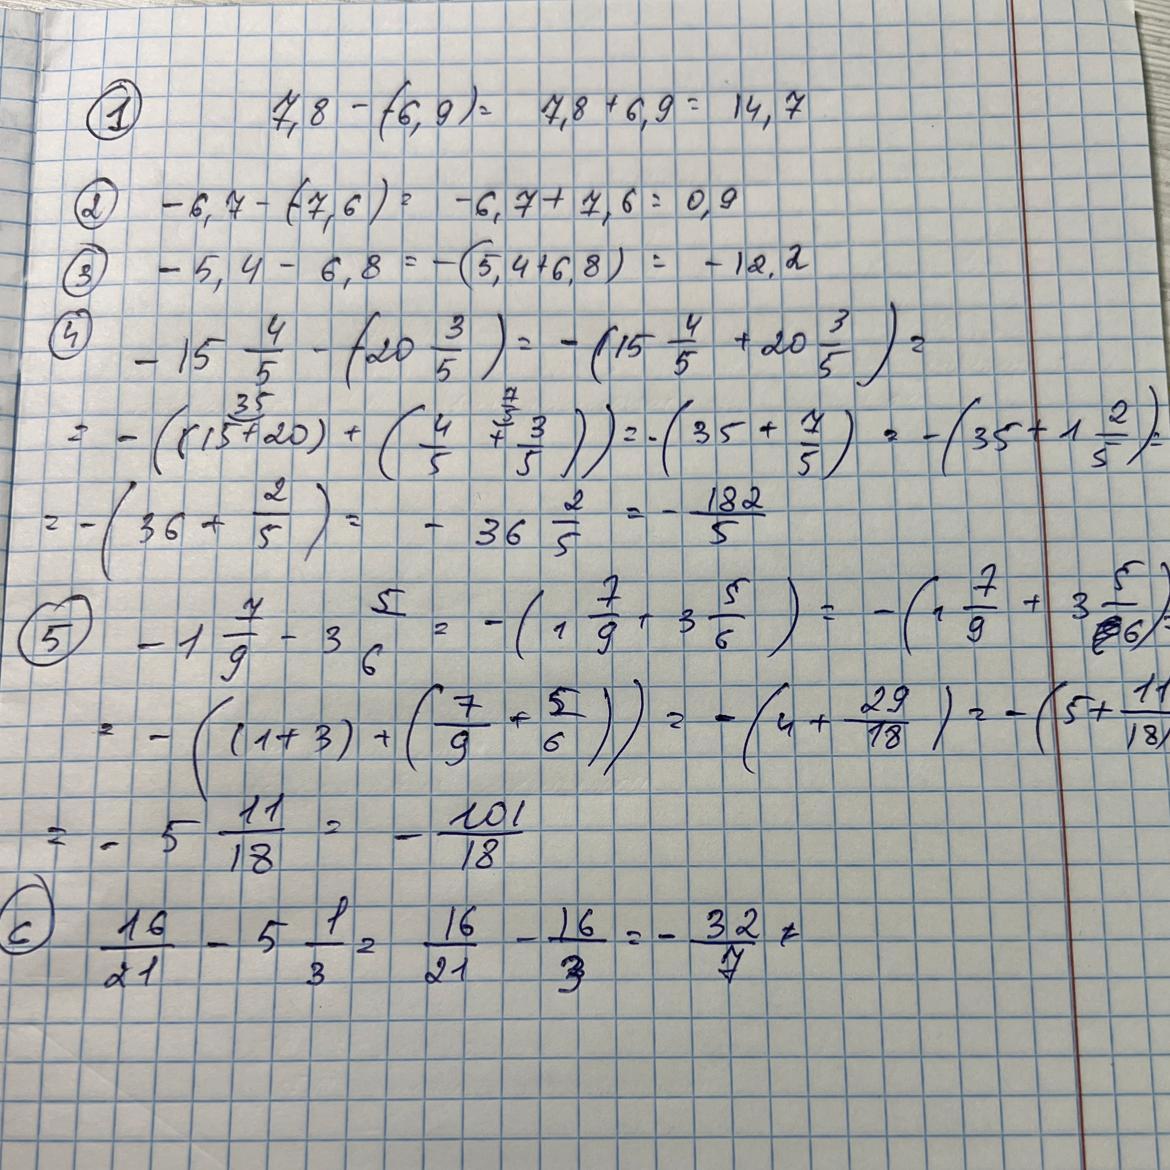 ① 7,8 - (-6,9) = 7,8 + 6,9 = 14,7
② -6,7 - (-7,6) = -6,7 + 7,6 = 0,9
③ -5,4 - 6,8 = -(5,4+6,8) = -12,2
④ -15 4/5 - (-20 3/5) = -(15 4/5 + 20 3/5) =
= -((15+20) 35 + (4/5 + 3/5) 7/5) = -(35 + 7/5) = -(35 + 1 2/5) =
= -(36 + 2/5) = -36 2/5 = -182/5
⑤ -1 7/9 - 3 5/6 = -(1 7/9 + 3 5/6) = -(1 7/9 + 3 5/6) =
= -((1+3) + (7/9 + 5/6)) = -(4 + 29/18) = -(5 + 11/18)
= -5 11/18 = -101/18
⑥ 16/21 - 5 1/3 = 16/21 - 16/3 = -32/7